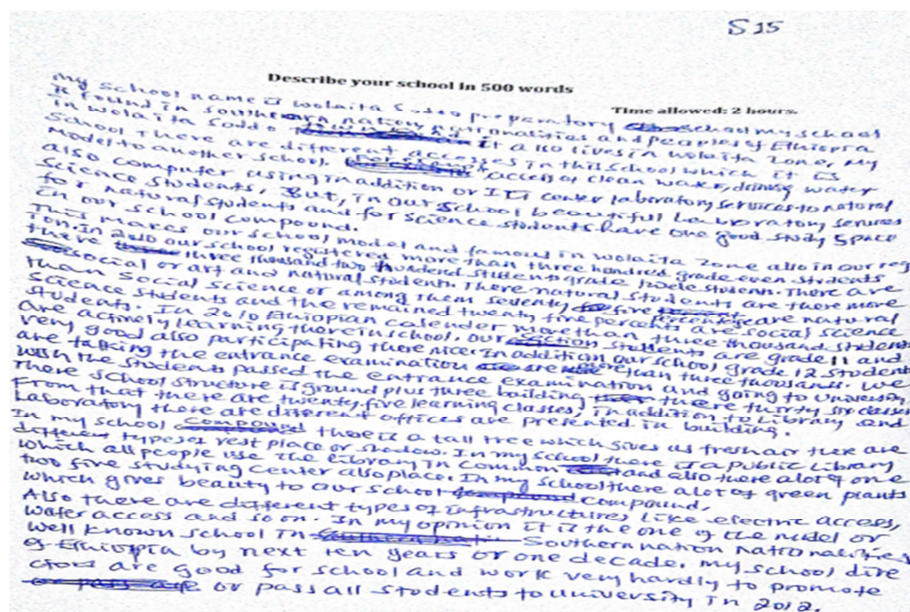 S 15
Describe your school in 500 words
Time allowed: 2 hours.
My School name is wolaita preparatory school my school
is found in southern nation nationalities and peoples of Ethiopia
in wolaita Soddo It also lives in wolaita Zone, My
School There are different accesses in this school which it is
Model to another school. access of clean water, drinking water
also computer using in addition or center laboratory services to natural
Science students, But, in our school beautiful Laboratory services
for natural students and for science students have one good study space
in our school compound.
This makes our school model and famous in wolaita Zone also in our reg
ion. In our school registered more than three hundred grade even students
there three thousand two students grade students. There are
social or art and natural students. There natural students are more
than social science or among them seventy five are natural
Science students and the remained twenty five percents are social science
students. In 2010 Ethiopian calender more than three thousand students
are actively learning there in school, our students are grade 11 and
very good also participating there nice. In addition our school grade 12 students
are talking the entrance examination are than three thousands. We
wish the students passed the entrance examination and going to University.
There school structure is ground plus three building there thirty six classes
From that there are twenty five learning classes, in addition to Library and
Laboratory there are different offices are presented in building.
In my school there is a tall tree which gives as fresh air there are
different types of rest place or shadow. In my school there is a public Library
which all people use the library in common and also there a lot of one
two five studying center also place. In my school there a lot of green plants
which gives beauty to our school compound.
Also there are different types of infrastructures like electric access,
water access and so on. In my opinion it is the one of the model or
well known school in Southern nation Nationalities
of Ethiopia by next ten years or one decade, my school dire
ctors are good for school and work very hardly to promote
or pass all students to university in 2012